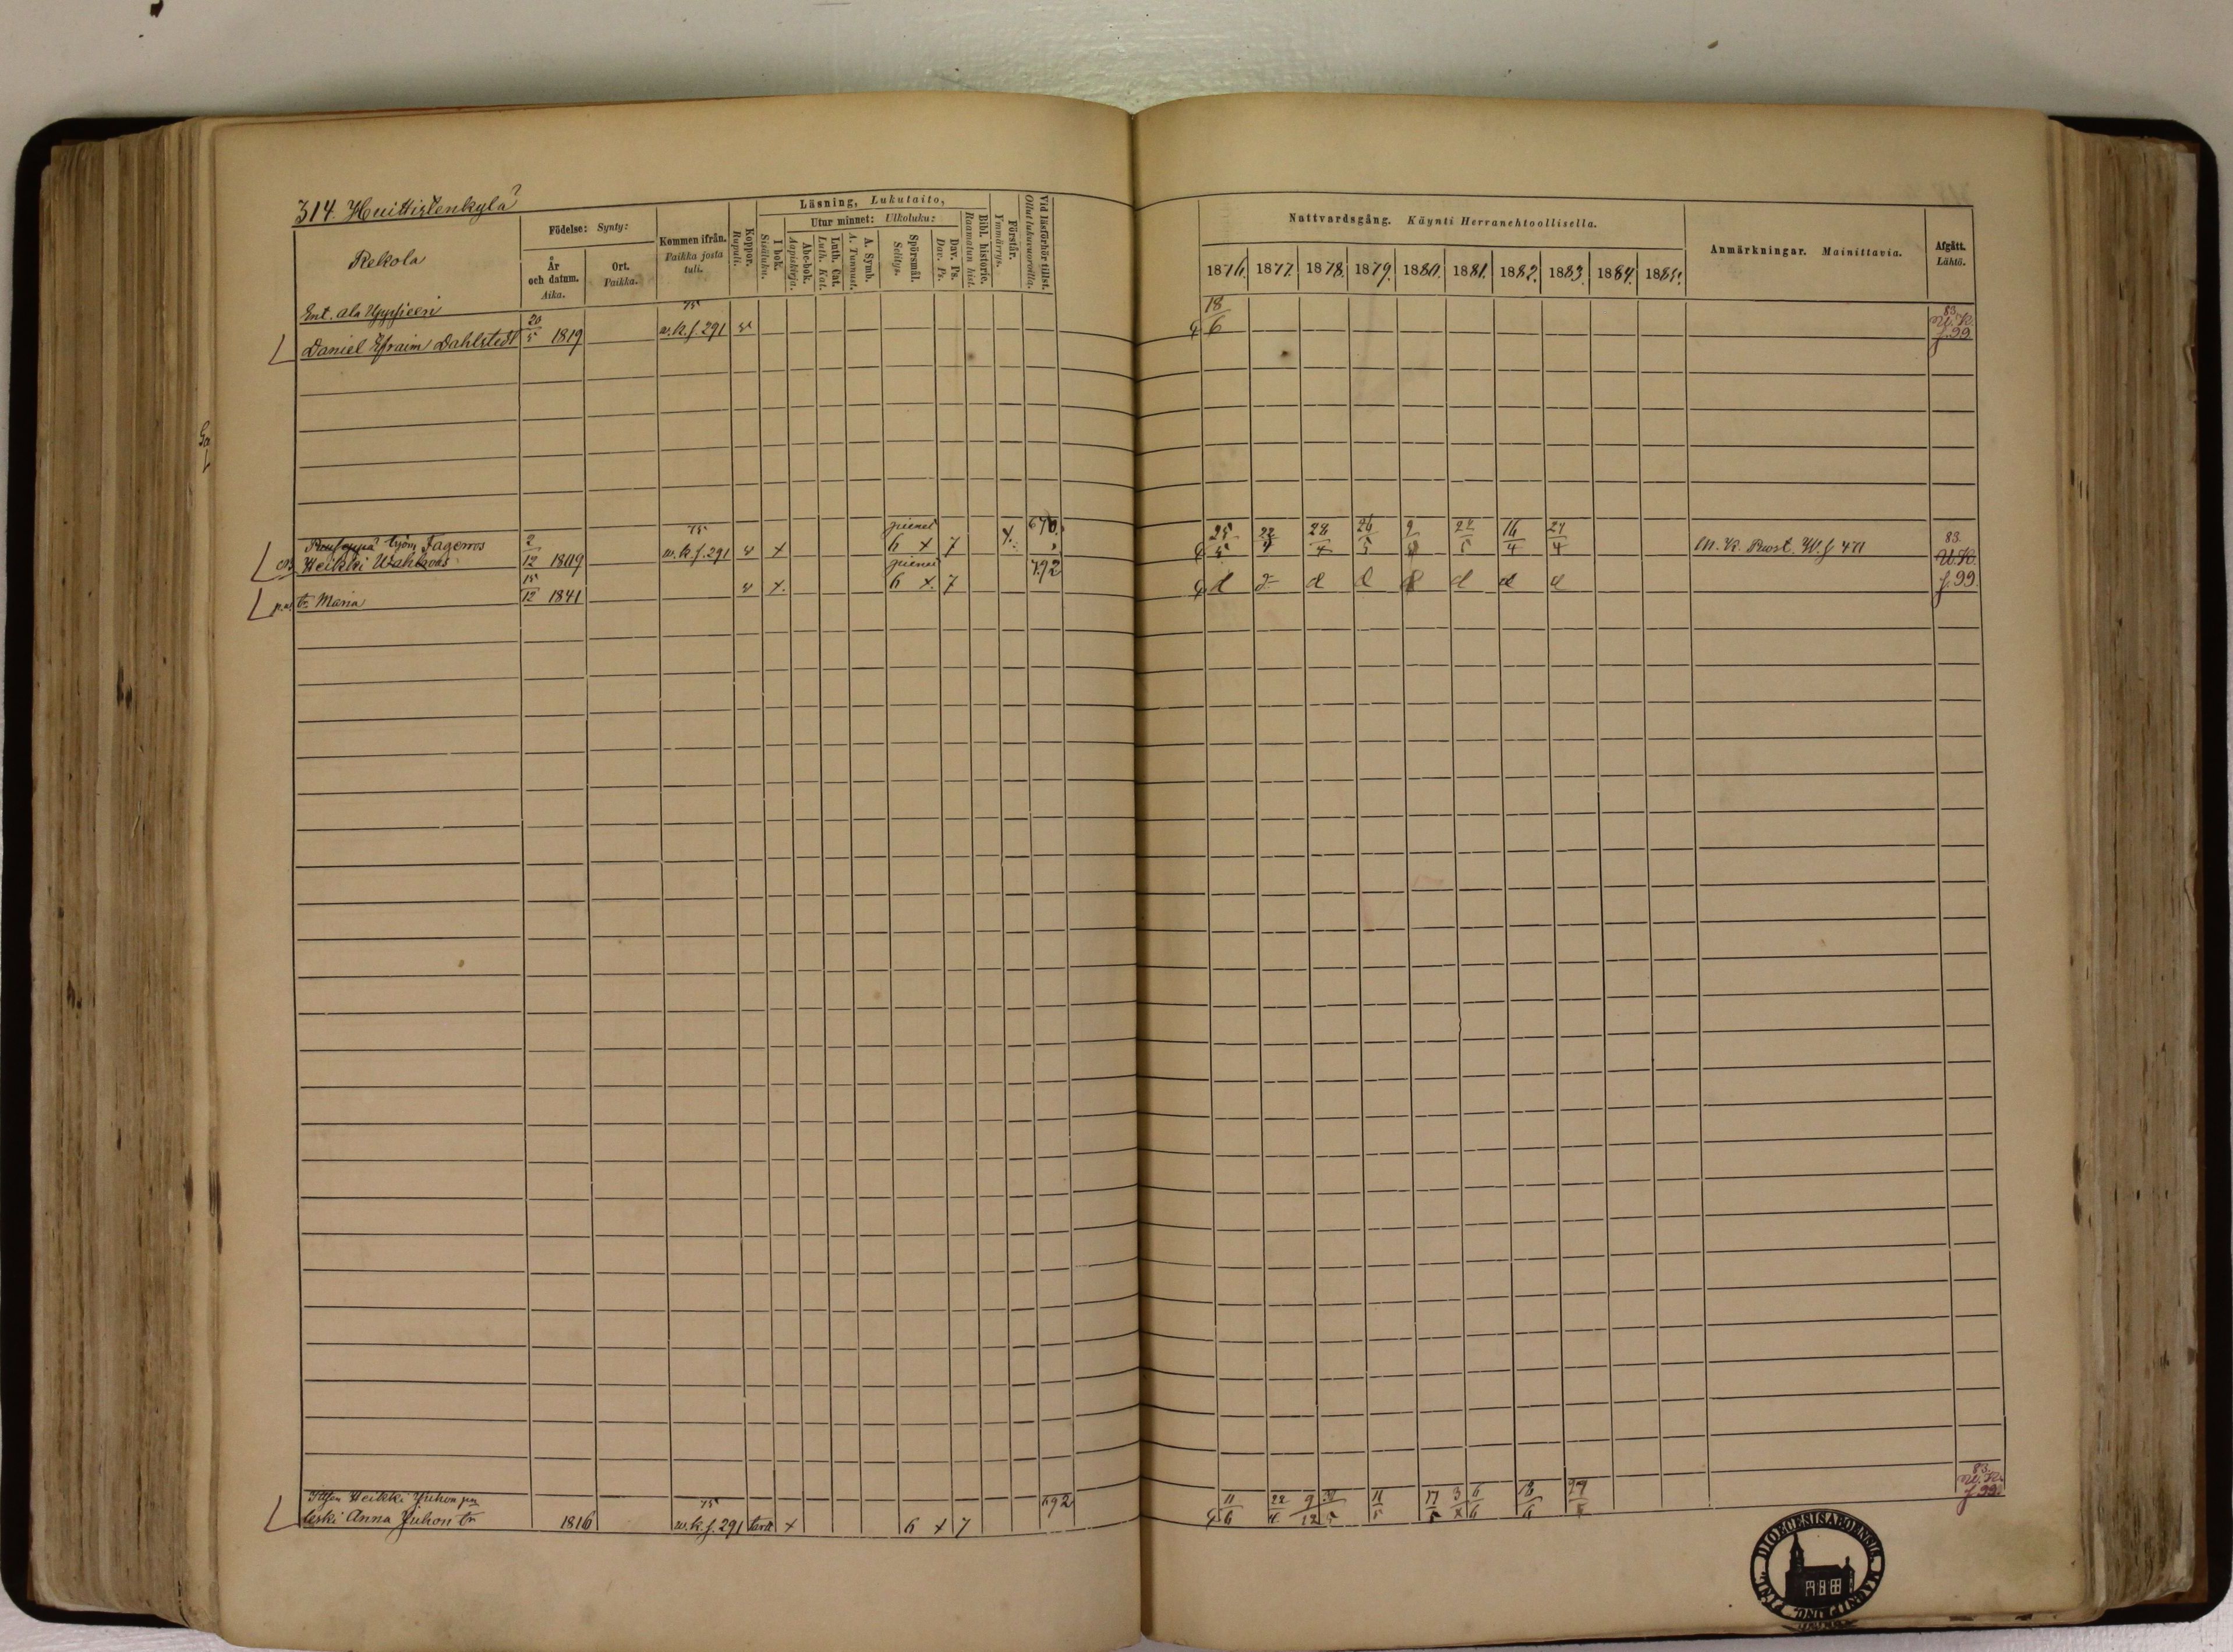 314. Huittistenkylä
Rekola
Födelse: Synty:
År och datum. Aika.
Ort. Paikka.
Kommen ifrån. Paikka josta tuli.
Koppor. Rupuli.
Läsning, Lukutaito,
I bok. Sisäluku.
Utur minnet: Ulkoluku:
Abc-bok. Aapiskirja.
Luth. Cat. Luth. Kat.
A. Symb. A. Tunnust.
Spörsmål. Selitys.
Dav. Ps. Dav. Ps.
Bibl. historie. Raamatun hist.
Förstår. Ymmärrys.
Vid läsförhör tillst. Ollut lukuvuoroilla.
Nattvardsgång. Käynti Herranehtoollisella.
1876. 1877. 1878. 1879. 1880. 1881. 1882. 1883. 1884. 1885.
Anmärkningar. Mainittavia.
Afgått. Lähtö.
Ent. 75 18 83
Daniel Efraim Dahlstedt 20/5 1819 w.k.f. 291 18/6 W.K. f. 99
pienet 690.
työm. Fagerroos 75
Heikki 2/12 1809 w.k.f. 291 x 6 x 7 25/5 28/4 26/5 22/5 16/4 24/4 M.K. W.f 83 W.K.
pienet 792
tr. Maria 15/12 1841 x. 6 x. 7 d d d d d d d f. 99
Heikki Juhon 75 692 83 W.K.
leski Anna Juhon tr 1816 w.k.f. 291 x 6 x 7 11/6 22/4 9/12 11/5 17/5 6/6 18/6 f. 99.